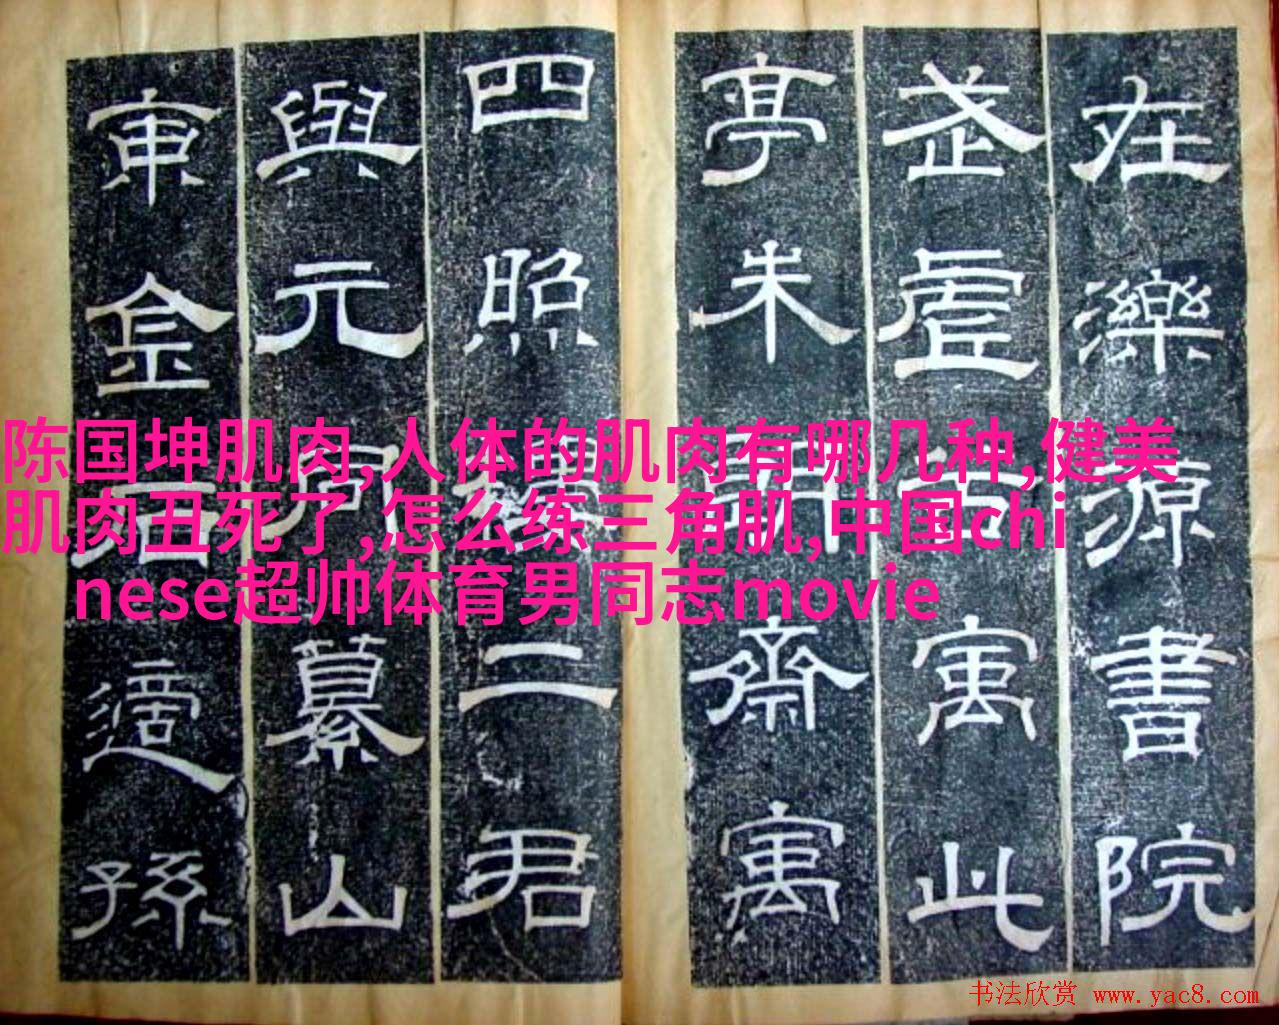 陈国坤肌肉,人体的肌肉有哪几种,健美
肌肉丑死了,怎么练三角肌,中国chi
nese超帅体育男同志movie
在濼源書院
武虛寓此
亭朱齋寓
四照二君
與元同纂山
東金石適孫
书法欣赏 www.yac8.com